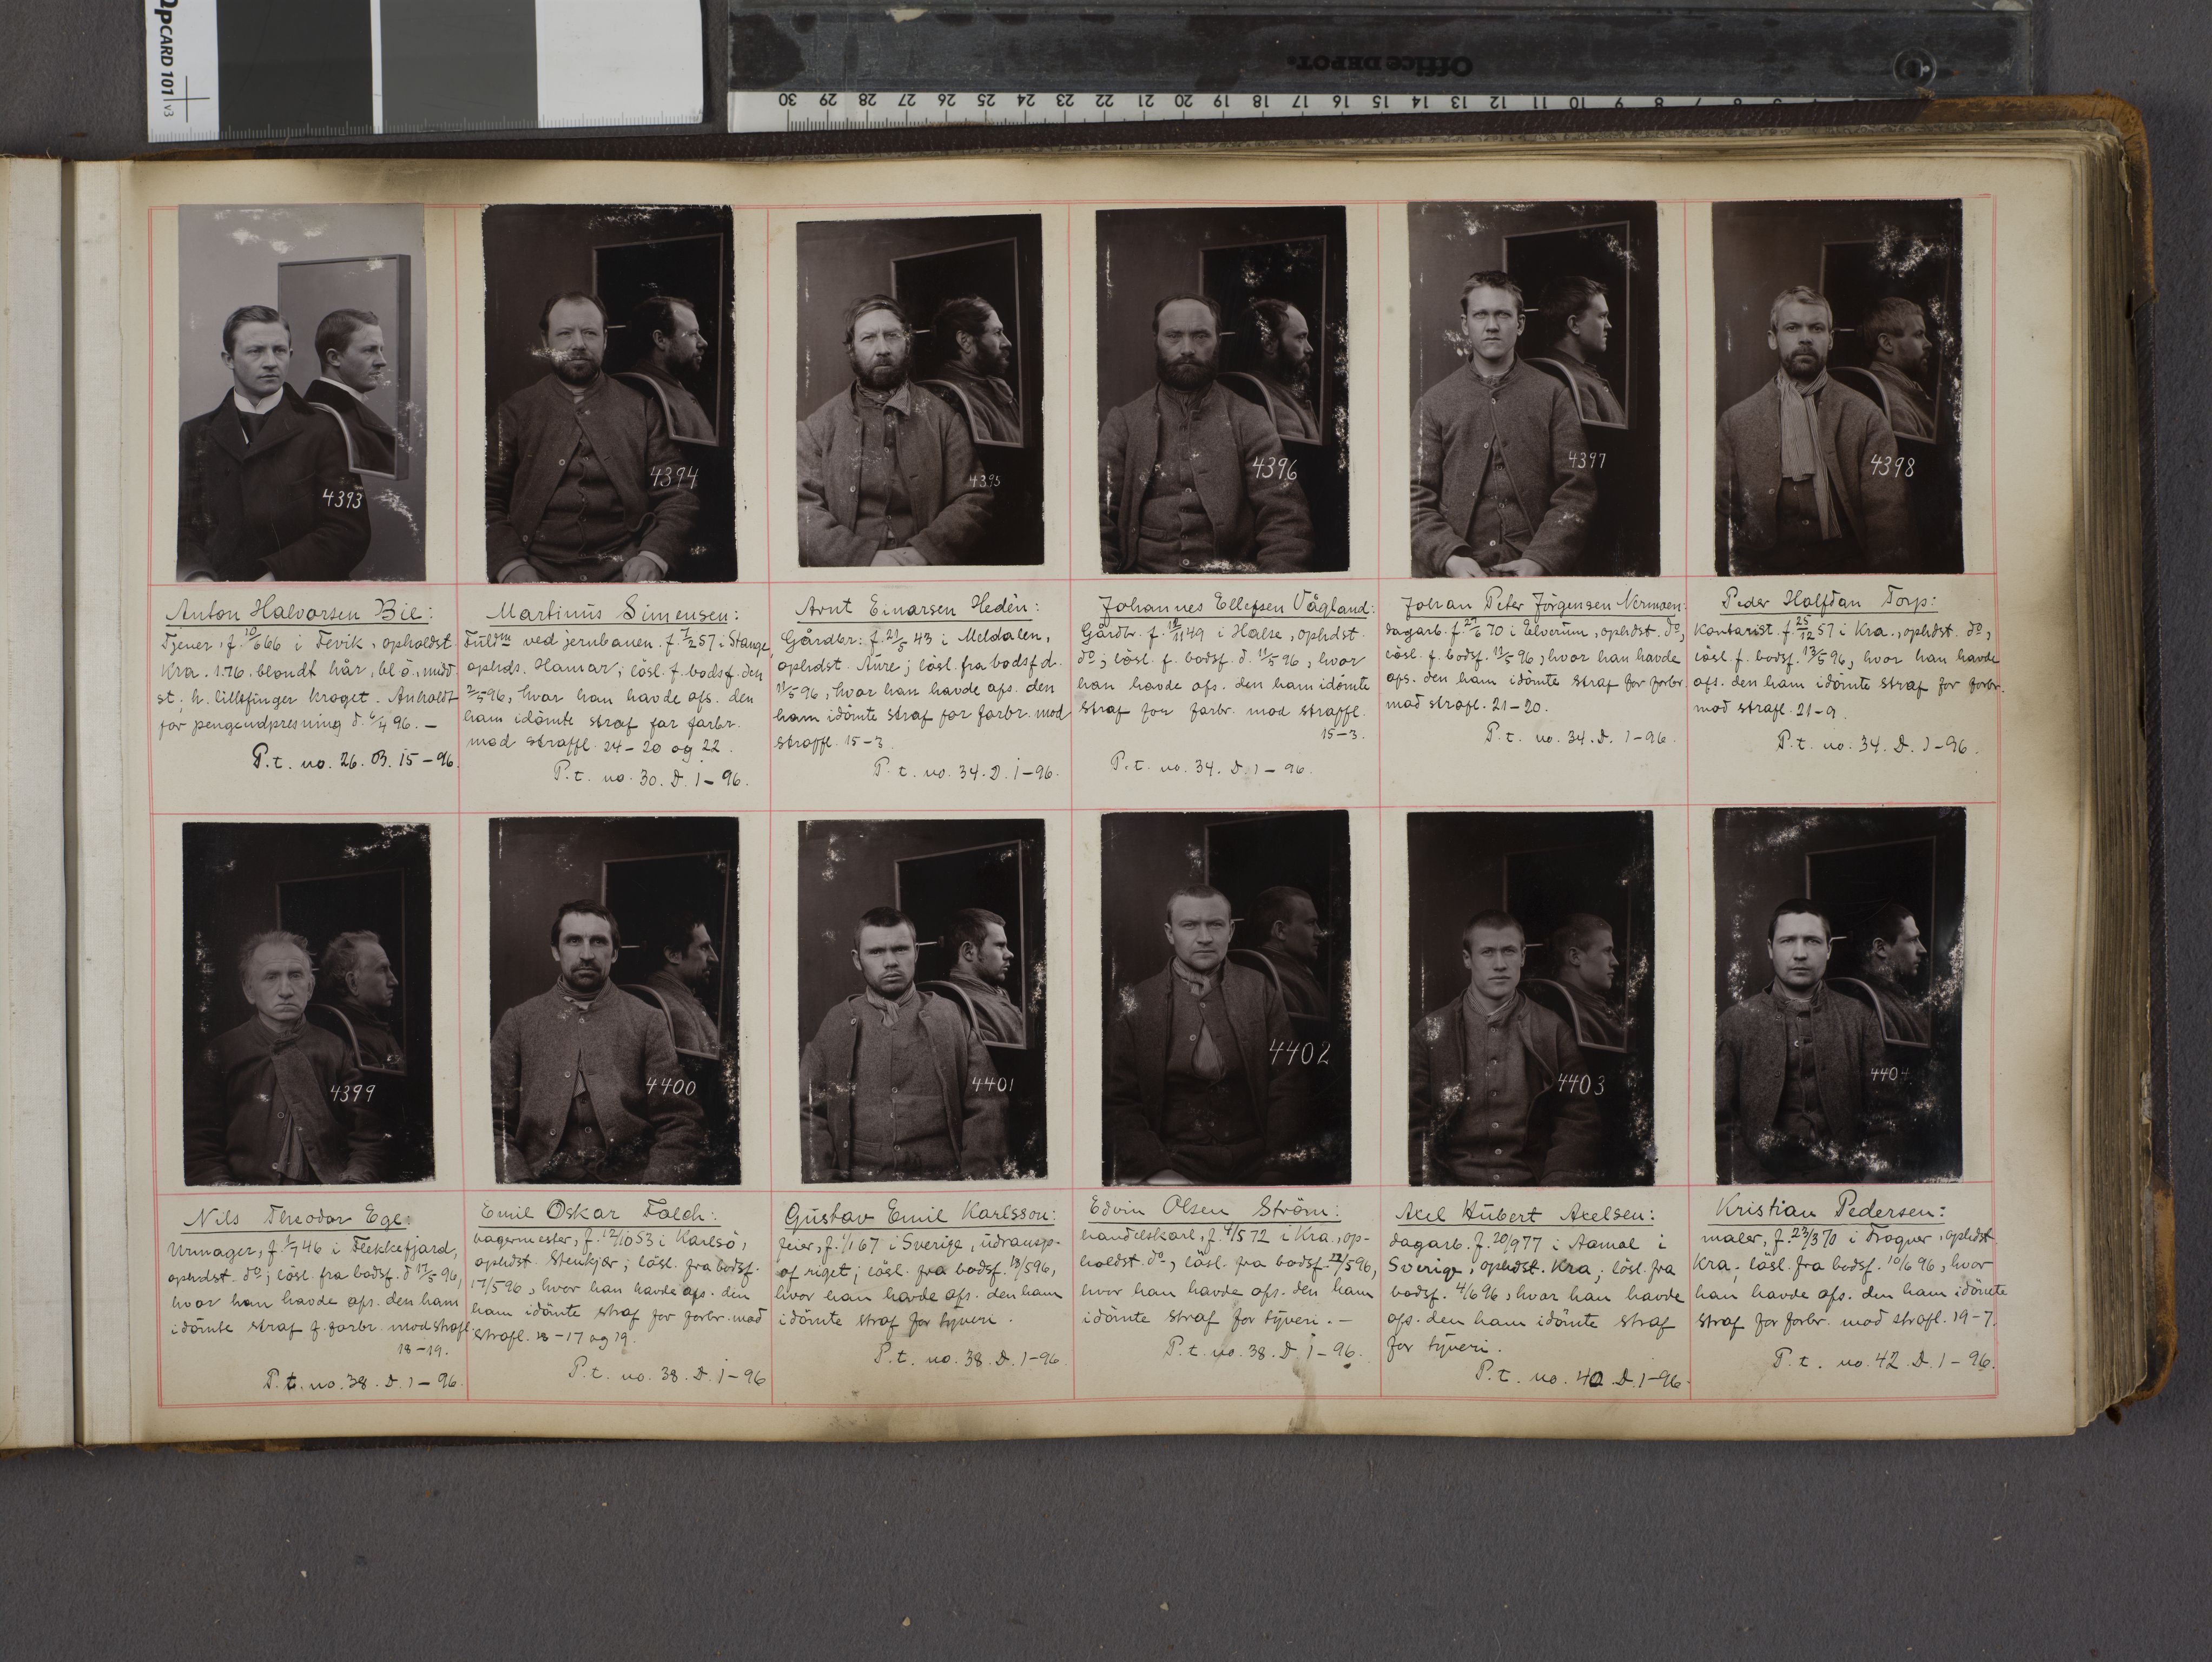 OpCARD 101 v3
Office DEPOT.
30 29 28 27 26 25 24 23 22 21 20 19 18 17 16 15 14 13 12 11 10 9 8 7 6 5 4 3
4393
Anton Halvorsen Bie:
Tjener, f. 10/6 66 i Fevik, opholdst
Kra. 1.76, blondt hår, bl. ö., midd.
st; h. lillefinger kroget. Anholdt
for pengeudpresning d. 4/4 96. —
P.t. no. 26. B. 15-96.
4394
Martinus Simensen:
Fuldm ved jernbanen. f. 7/2 57 i Stange,
ophds. Hamar; lösl. f. bodsf. den
2/5 96, hvor han havde afs. den
ham idömte straf for forbr.
mod straffl. 24-20 og 22.
P.t. no. 30. D. 1-96.
4395
Arnt Einarsen Hedèn:
Gårdbr: f. 21/5 43 i Meldalen,
ophdst. Aure; lösl. fra bodsf d.
11/5 96, hvor han havde afs. den
ham idömte straf for forbr. mod
straffl. 15-3.
P.t. no. 34. D. 1-96.
4396
Johannes Ellefsen Vågland:
Gårdbr. f. 12/11 49 i Halse, ophdst.
do; lösl. f. bodsf. d. 11/5 96, hvor
han havde afs. den ham idömte
straf for forbr. mod straffl.
15-3.
P.t. no. 34. D. 1-96.
4397
Johan Peter Jörgensen Nermoen:
dagarb. f. 27/6 70 i Elverum, ophdst. do,
lösl. f. bodsf. 11/5 96, hvor han havde
afs. den ham idömte straf for forbr.
mod strafl. 21-20.
P.t. no. 34. D. 1-96.
4398
Peder Halfdan Torp:
Kontorist. f. 25/12 57 i Kra., ophdst. do,
lösl. f. bodsf. 13/5 96, hvor han havde
afs. den ham idömte straf for forbr.
mod strafl. 21-9.
P.t. no: 34. D. 1-96.
4399
Nils Theodor Ege:
Urmager, f. 1/7 46 i Flekkefjord,
ophdst. do; lösl. fra bodsf. d 17/5 96,
hvor han havde afs. den ham
idömte straf f. forbr. mod strafl.
18-19.
P.t. no. 38. D. 1-96.
4400
Emil Oskar Falch:
bagermester, f. 12/10 53 i Karlsö,
ophdst. Stenkjær; lösl. fra bodsf.
17/5 96, hvor han havde afs. den
ham idömte straf for forbr. mod
strafl. 18-17 og 19.
P.t. no. 38. D. 1-96
4401
Gustav Emil Karlsson:
feier, f. 1/1 67 i Sverige, udtransp.
af riget; lösl. fra bodsf. 18/5 96,
hvor han havde afs. den ham
idömte straf for tyveri.
P.t. no. 38. D. 1-96.
4402
Edvin Olsen Ström:
handelskarl, f. 4/5 72 i Kra., op-
holdst. do, lösl. fra bodsf. 22/5 96,
hvor han havde afs. den ham
idömte straf for tyveri. —
P.t. no. 38. D. 1-96.
4403
Axel Hubert Axelsen:
dagarb. f. 20/9 77 i Aamal i
Sverige, ophdst. Kra; lösl. fra
bodsf. 4/6 96, hvor han havde
afs. den ham idömte straf
for tyveri.
P.t. no. 40. D. 1-96.
4404
Kristian Pedersen:
maler, f. 23/3 70 i Frogner, ophdst.
Kra; lösl. fra bodsf. 10/6 96, hvor
han havde afs. den ham idömte
straf for forbr. mod strafl. 19-7.
P.t. no. 42. D. 1-96.